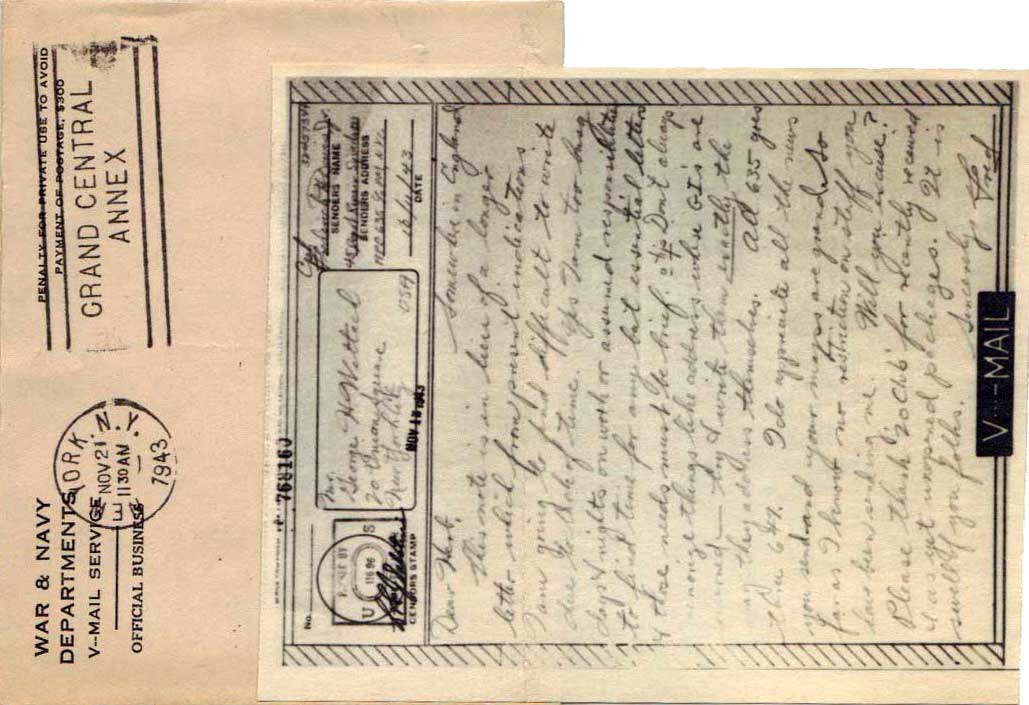 WAR & NAVY
DEPARTMENTS
V-MAIL SERVICE
OFFICIAL BUSINESS
PENALTY FOR PRIVATE USE TO AVOID
PAYMENT OF POSTAGE, $300
GRAND CENTRAL
ANNEX
YORK, N.Y.
NOV 21
11 30 AM
1943
No.
768160
PASSED BY
U S
CENSOR'S STAMP
Mr.
George H Wettach
20
New York
USA
NOV 13 1943
Cpl
SENDERS NAME
SENDERS ADDRESS
DATE
Somewhere in England
Dear Herb,
This note is in lieu of a longer
letter which from present indications
I am going to find difficult to write
due to lack of time. Yes I am too busy
days & nights on work or assumed responsibilities
to find time for any but essential letters
& those needs must be brief. Don't always
arrange things like address where GI's are
concerned - try & write them exactly the
way they address themselves. Ad 635 goes
thru 647. I do appreciate all the news
you send and your maps are grand. So
far as I know no restriction on stuff you
have been sending me. Will you excuse?
Please thank '20 Club' for recently received
& as yet unopened packages. It is
swell of you folks.
Sincerely,
Fred
V···-MAIL